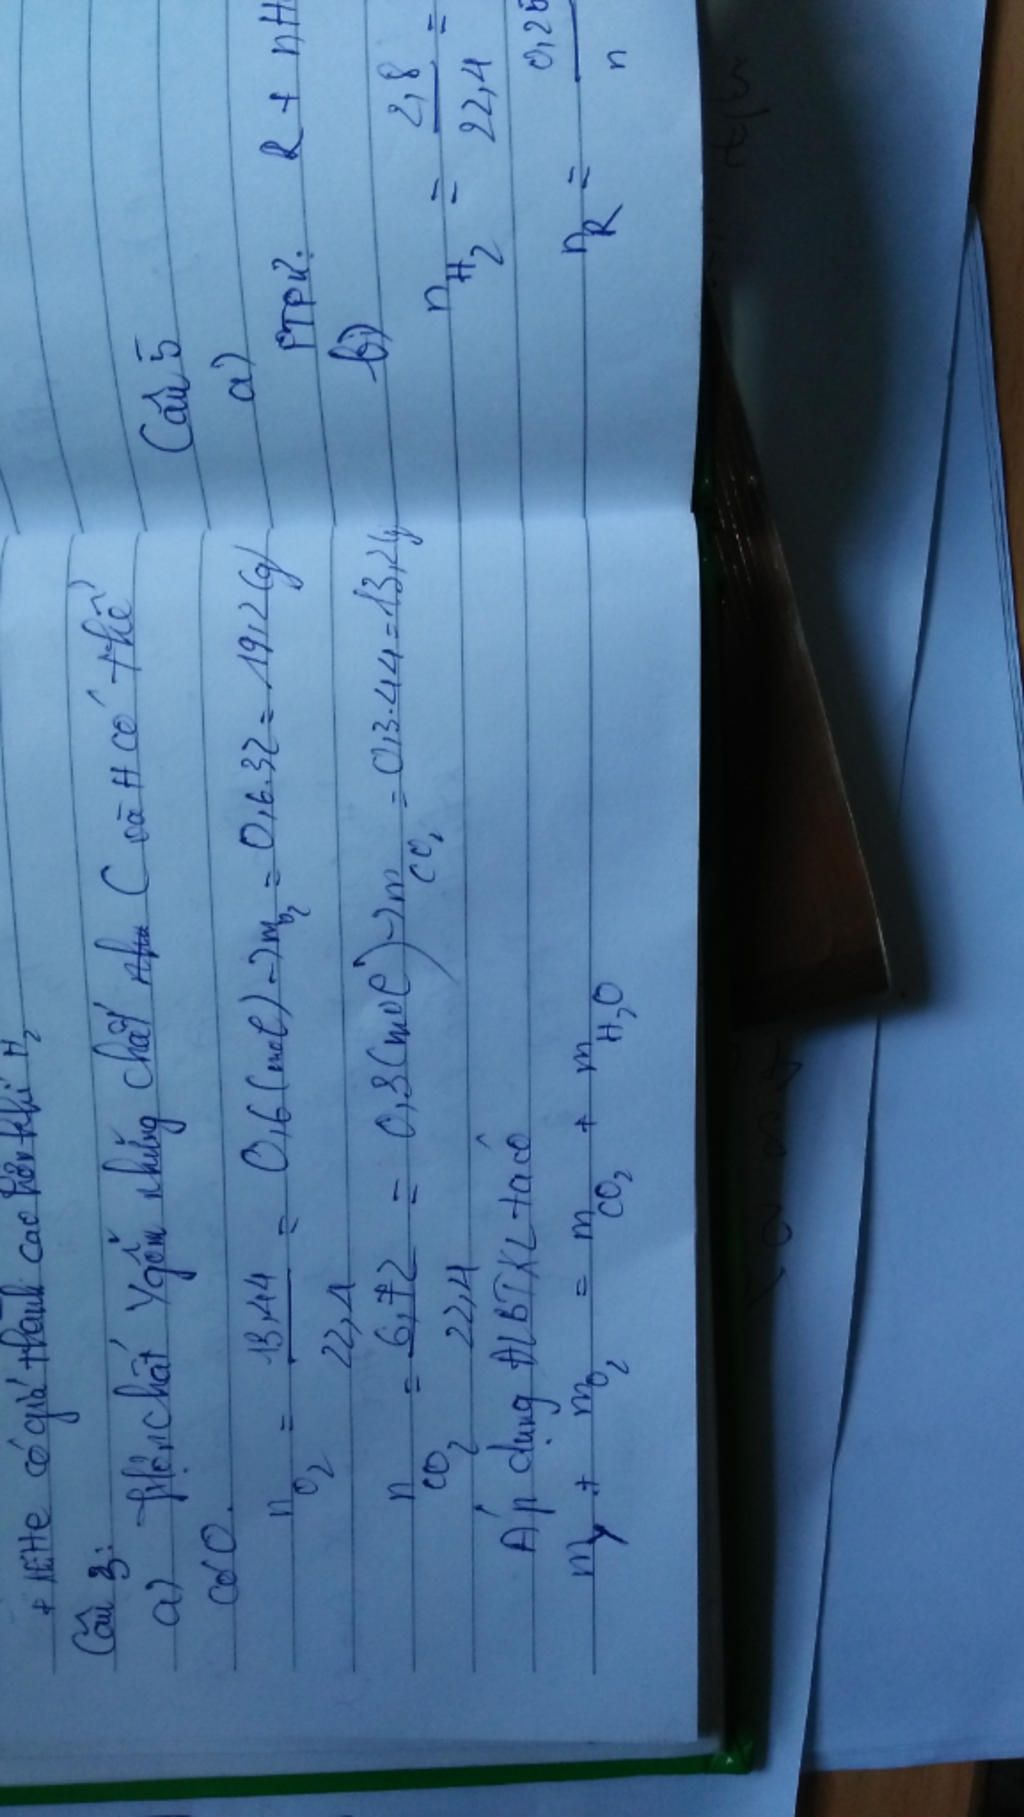 + Khí He có giá thành cao hơn khí H2
Câu 3:
a) Hợp chất Y gồm những chất C và H có thể
có O.
nO2 = 13,44 / 22,4 = 0,6 (mol) -> mO2 = 0,6.32 = 19,2 (g)
nCO2 = 6,72 / 22,4 = 0,3 (mol) -> mCO2 = 0,3.44 = 13,2 g
Áp dụng ĐLBTKL ta có
mY + mO2 = mCO2 + mH2O
Câu 5
a)
PTPƯ: R + nH
b)
nH2 = 2,8 / 22,4 =
nR = 0,25 / n